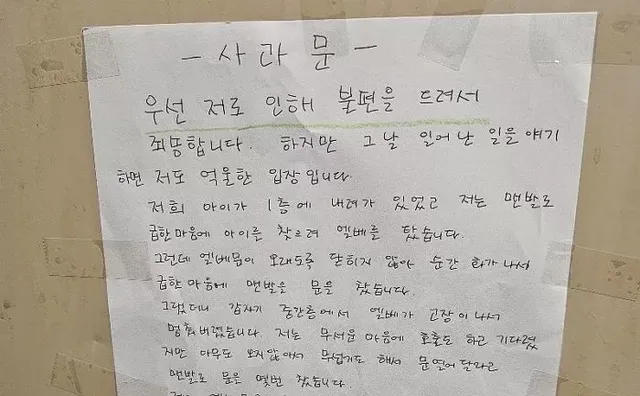 - 사 과 문 -
우선 저로 인해 불편을 드려서
죄송합니다. 하지만 그날 일어난 일을 얘기
하면 저도 억울한 입장입니다.
저희 아이가 1층에 내려가 있었고 저는 맨발로
급한마음에 아이를 찾으려 엘베를 탔습니다.
그런데 엘베문이 오래도록 닫히지 않아 순간 화가 나서
급한 마음에 맨발을 문을 찼습니다.
그랬더니 갑자기 중간층에서 엘베가 고장이 나서
멈춰버렸습니다. 저는 무서운 마음에 호출도 하고 기다렸
지만 아무도 오지않아서 무섭기도 해서 문열어 달라고
맨발로 문을 몇번 찼습니다.